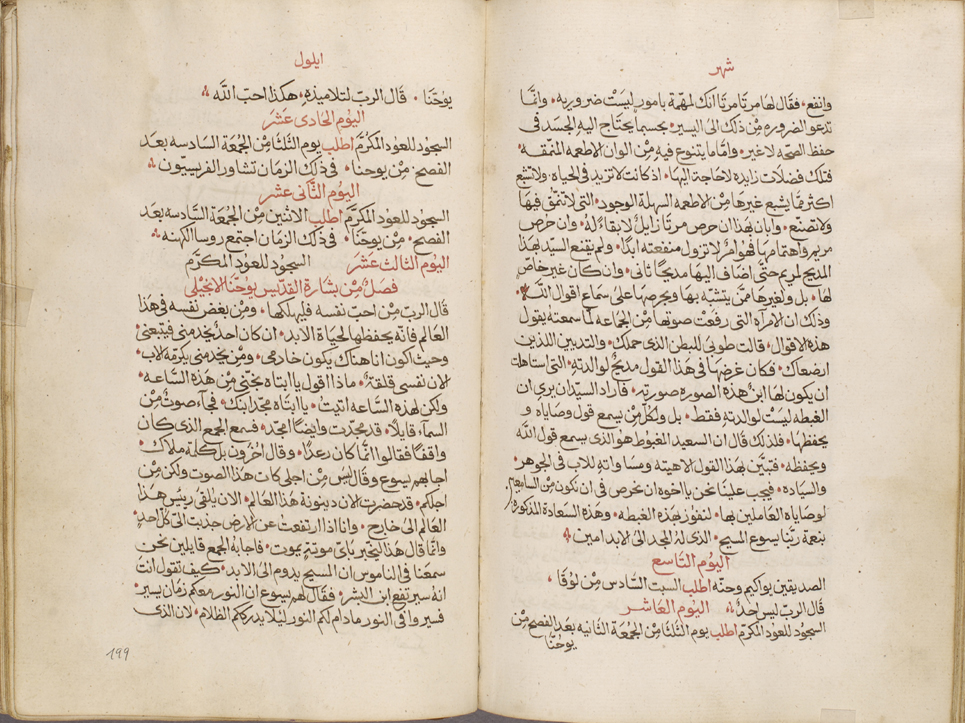 شهر
وانفع • فقال لها مرتا مرتا انك لمهتمة بامور ليست ضروريه • وانما
تدعو الضروره من ذلك الى اليسير • بحسبما يحتاج اليه الجسد فى
حفظ الصحه لا غير • واما ما يتنوع فيه من الوان الاطعمه المنمقه •
فتلك فضلات زايده لا حاجة اليها • اذ كانت لا تزيد فى الحياه ولا تشبع
اكثر مما يشبع غيرها من الاطعمه السهلة الوجود • التى لا تنمق فيها
ولا تصنع • وابان بهذا ان حرص مرتا زايل لا بقاء له • وان حرص
مريم واهتمامها فهو امر لا تزول منفعته ابدا • ولم يقنع السيد بهذا
المديح لمريم حتى اضاف اليها مديحا ثانى • وان كان غير خاص
لها • بل ولغيرها ممن يتشبه بها ويحرصها على سماع اقوال الله •
وذلك ان الامراه التى رفعت صوتها من الجماعه لما سمعته يقول
هذه الاقوال • قالت طوبى للبطن الذى حملك • والثديين اللذين
ارضعاك • فكان غرضها فى هذا القول مديح لوالدته • التى استاهلت
ان يكون لها ابن هذه الصوره صورته • فاراد السيد ان يرى ان
الغبطه ليست لوالدته فقط • بل ولكل من يسمع قول وصاياه و
يحفظها • فلذلك قال ان السعيد المغبوط هو الذى يسمع قول الله
ويحفظه • فتبين بهذا القول لاهيته ومساواته للاب فى الجوهر •
والسياده • فيجب علينا نحن يا اخوه ان نحرص فى ان نكون من السامعين
لوصاياه العاملين بها • لنفوز بهذه الغبطه • وهذه السعادة المذكوره
بنعمة ربنا يسوع المسيح • الذى له المجد الى الابد امين
اليوم التاسع
الصديقين يواكيم وحنه اطلب السبت السادس من لوقا •
قال الرب ليس احد اليوم العاشر
السجود للعود المكرم اطلب يوم الثلثا من الجمعة الثانيه بعد الفصح من
يوحنا
ايلول
يوحنا • قال الرب لتلاميذه • هكذا احب الله
اليوم الحادى عشر
السجود للعود المكرم اطلب يوم الثلثا من الجمعة السادسه بعد
الفصح • من يوحنا • فى ذلك الزمان تشاور الفريسيون
اليوم الثانى عشر
السجود للعود المكرم اطلب الاثنين من الجمعة السادسه بعد
الفصح • من يوحنا • فى ذلك الزمان اجتمع روسا الكهنه
اليوم الثالث عشر السجود للعود المكرم
فصل من بشارة القديس يوحنا الانجيلى
قال الرب من احب نفسه فليهلكها • ومن يغض نفسه فى هذا
العالم فانه يحفظها لحياة الابد • ان كان احد يخدمنى فيتبعنى
وحيث اكون انا هناك يكون خادمى • ومن يخدمنى يكرمه الاب •
لان نفسى قلقة • ماذا اقول يا ابتاه نجنى من هذه الساعه •
ولكن لهذه الساعه اتيت • يا ابتاه مجد ابنك • فجاء صوت من
السماء قايلا • قد مجدت وايضا امجد • فسمع الجمع الذى كان
واقفا فقالوا انما كان رعدا • وقال اخرون بل كلمه ملاك •
اجابهم يسوع وقال ليس من اجلى كان هذا الصوت ولكن من
اجلكم • قد حضرت الان دينونة هذا العالم • الان يلقى ريس هذا
العالم الى خارج • وانا اذا ارتفعت عن الارض جذبت الى كل احد
وانما قال هذا ليخبر باى موتة يموت • فاجابه الجمع قايلين نحن
سمعنا فى الناموس ان المسيح يدوم الى الابد • كيف تقول انت
انه سيرتفع ابن البشر • فقال لهم يسوع ان النور معكم زمان يسير •
فسيروا فى النور ما دام لكم النور ليلا يدرككم الظلام • لان الذى
199